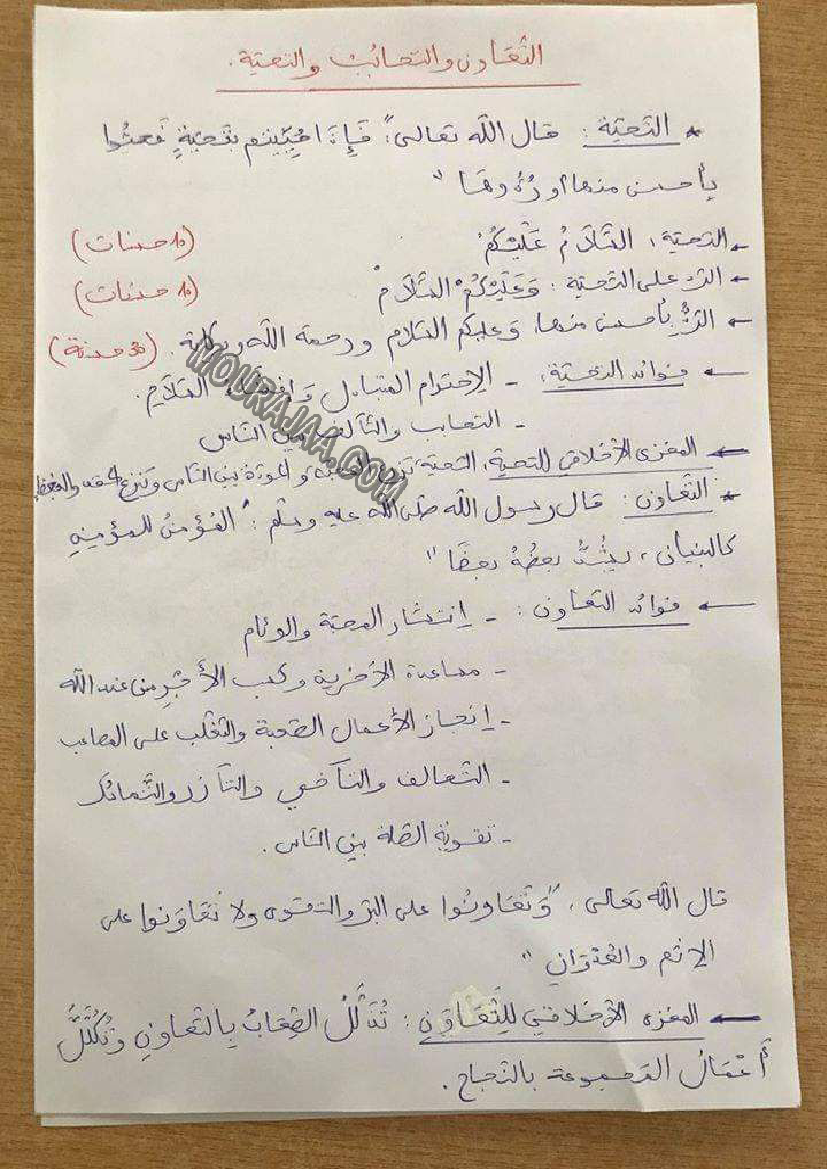 التّعاون والتحابب والتحيّة.
* التّحيّة : قال الله تعالى: "فَإِذَا حُيِّيتم بتحيّةٍ فحيُّوا
بأحسن منها أو رُدّوها"
- التحيّة : السّلَامُ عَلَيْكُمْ (10 حسنات)
- الردّ على التّحيّة : وَعَلَيْكُمْ السّلَامُ (10 حسنات)
- الردُّ بأحسن منها وعليكم السّلام ورحمة الله وبركاته. (30 حسنة)
← فوائد التحيّة : - الإحترام المتبادل وإفشاء السّلام.
- التحابب والتّآلف بين النّاس
← المغزى الأخلاقي للتحيّة : التحيّة تزرع المحبّة والمودّة بين النّاس وتنزع الحقد والبغض
* التّعاون : قال رسول الله صلّى الله عليه وسلّم : "المُؤمنُ للمؤمنِ
كالبنيان ، يشُدُّ بعضُهُ بعضًا"
← فوائد التّعاون : - إنتشار المحبّة والوئام
- مساعدة الآخرين وكسب الأجرِ من عند الله
- إنجاز الأعمال الصّعبة والتّغلّب على المصاعب
- التّحالف والتّآخي والتّآزر والتّماسك
- تقوية الصّلة بين النّاس.
قال الله تعالى : "وَتعَاونُوا على البرّ والتقوى ولا تعَاوَنوا على
الإثم والعُدْوَانِ"
← المغزى الأخلاقي للتّعَاوُنِ : تُذَلَّلُ الصِّعَابُ بالتّعاونِ وتُكَلَّلُ
أَعْمَالُ المجموعة بالنّجاح.
MOURAJAA.COM